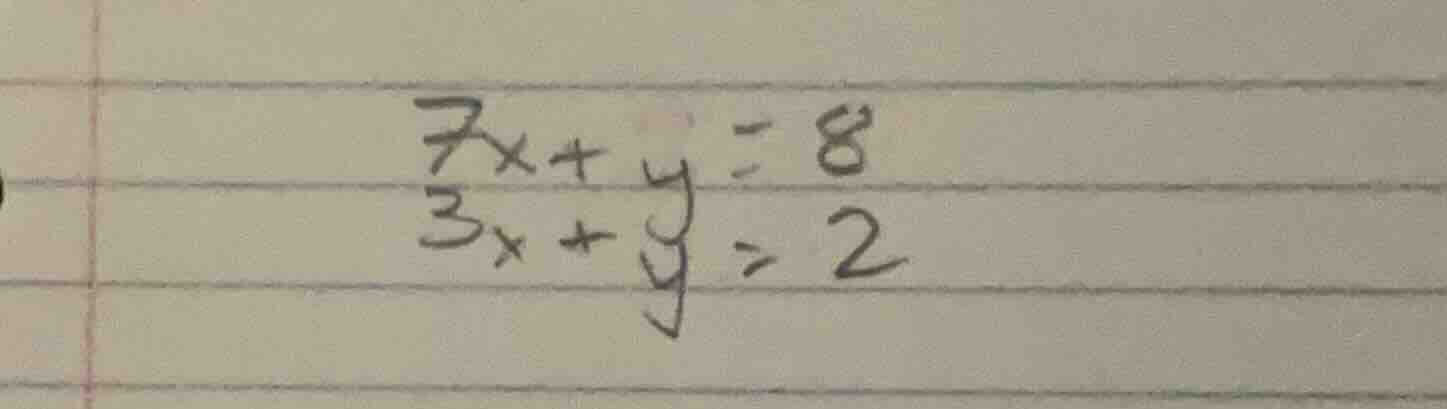 7x + y = 8
3x + y = 2